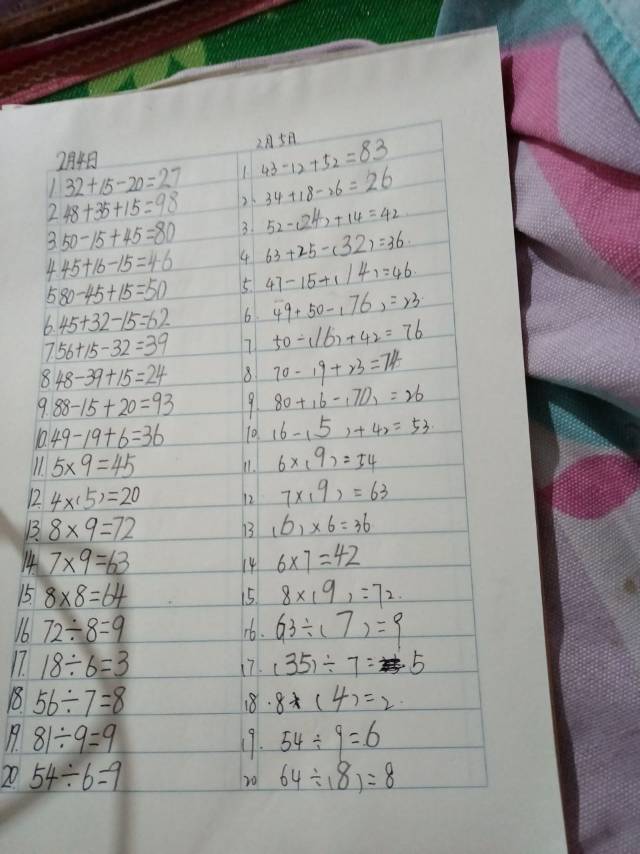 2月4日
1. 32+15-20=27
2. 48+35+15=98
3. 50-15+45=80
4. 45+16-15=46
5. 80-45+15=50
6. 45+32-15=62
7. 56+15-32=39
8. 48-39+15=24
9. 88-15+20=93
10. 49-19+6=36
11. 5×9=45
12. 4×(5)=20
13. 8×9=72
14. 7×9=63
15. 8×8=64
16. 72÷8=9
17. 18÷6=3
18. 56÷7=8
19. 81÷9=9
20. 54÷6=9
2月5日
1. 43-12+52=83
2. 34+18-26=26
3. 52-(24)+14=42
4. 63+25-(32)=36
5. 47-15+(14)=46
6. 49+50-(76)=23
7. 50-(16)+42=76
8. 70-19+23=74
9. 80+16-(70)=26
10. 16-(5)+42=53
11. 6×(9)=54
12. 7×(9)=63
13. (6)×6=36
14. 6×7=42
15. 8×(9)=72
16. 63÷(7)=9
17. (35)÷7=5
18. (4)=2
19. 54÷9=6
20. 64÷(8)=8